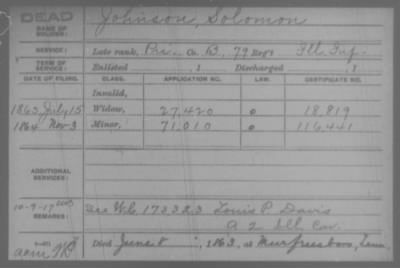 DEAD
NAME OF SOLDIER: Johnson, Solomon
SERVICE: Late rank, Pri. Co. B, 79 Reg't Ill. Inf.
TERM OF SERVICE: Enlisted , 1 Discharged , 1
DATE OF FILING. CLASS. APPLICATION NO. LAW. CERTIFICATE NO.
Invalid,
1863 July 15 Widow, 27,420 18,819
1864 Nov 3 Minor, 71,010 116,441
ADDITIONAL SERVICES:
10-9-17 See W.C. 173323 Louis P. Davis
REMARKS: A 2 Ill Cav.
Died June 8, 1863, at Murfreesboro, Tenn.